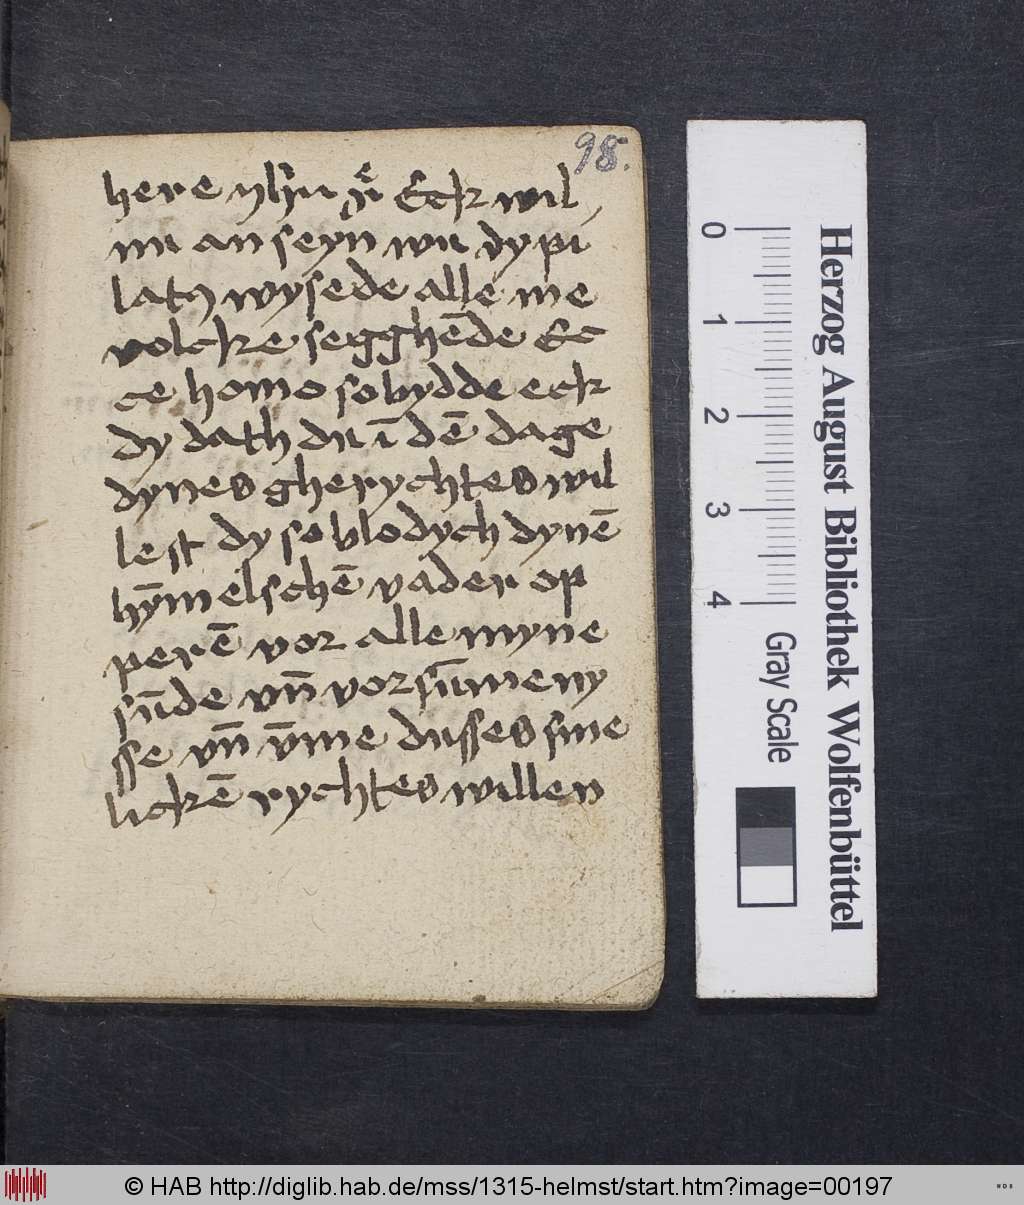 98.
here yhu xp Eck wil
nu an seyn wu dy pi
latq wysede alle me
volcke segghēde Ec
ce homo so bydde eck
dy dath du ī dē dage
dynes gherychtes wil
lest dy so blodych dynē
hȳmelschē vader op
perē vor alle myne
sūde vn̄ vorsūmeny
sse vn̄ v̄me dusses sme
lickē rychtes willen
0 1 2 3 4
Gray Scale
Herzog August Bibliothek Wolfenbüttel
© HAB http://diglib.hab.de/mss/1315-helmst/start.htm?image=00197